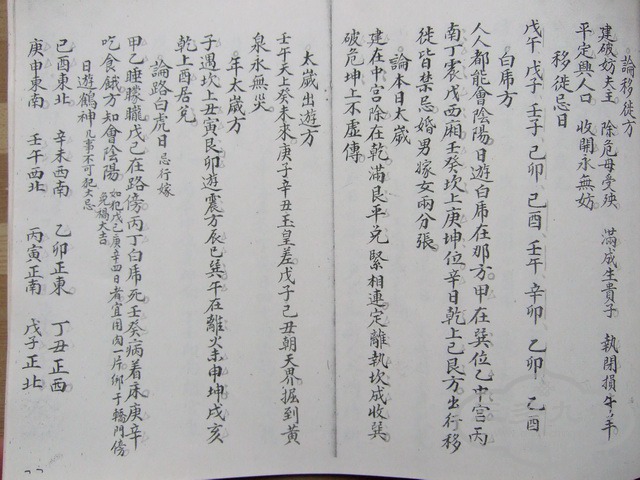 論移徙方
建破妨夫主 除危母受殃 滿成生貴子 執閉損牛羊
平定興人口 收開永無妨
移徙忌日
戊午 戊子 壬子 己卯 己酉 壬午 辛卯 乙卯 己酉
白虎方
人人都能會陰陽日遊白虎在那方甲在巽位乙中宮丙
南丁震戊西廂壬癸坎上庚坤位辛日乾上己艮方出行移
徙皆禁忌婚男嫁女兩分張
論本日太歲
建在中宮除在乾滿艮平兌緊相連定離執坎成收巽
破危坤上不虛傳
太歲出遊方
壬午天上癸未來庚子辛丑玉皇差戊子己丑朝天界掘到黃
泉永無災
年太歲方
子遇坎上丑寅艮卯遊震方辰巳巽午在離火未申坤戌亥
乾上酉居兌
論路白虎日忌行嫁
甲乙睡朦朧戊己在路傍丙丁白虎死壬癸病着床庚辛
吃食餓方知會陰陽如犯戊己庚辛四日者宜用肉一片綁于轎門傍免禍大吉
日遊鶴神凡事不可犯大忌
己酉東北 辛未西南 乙卯正東 丁丑正西
庚申東南 壬午西北 丙寅正南 戊子正北